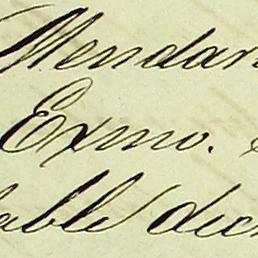 Mendar
Exmo.
able dict